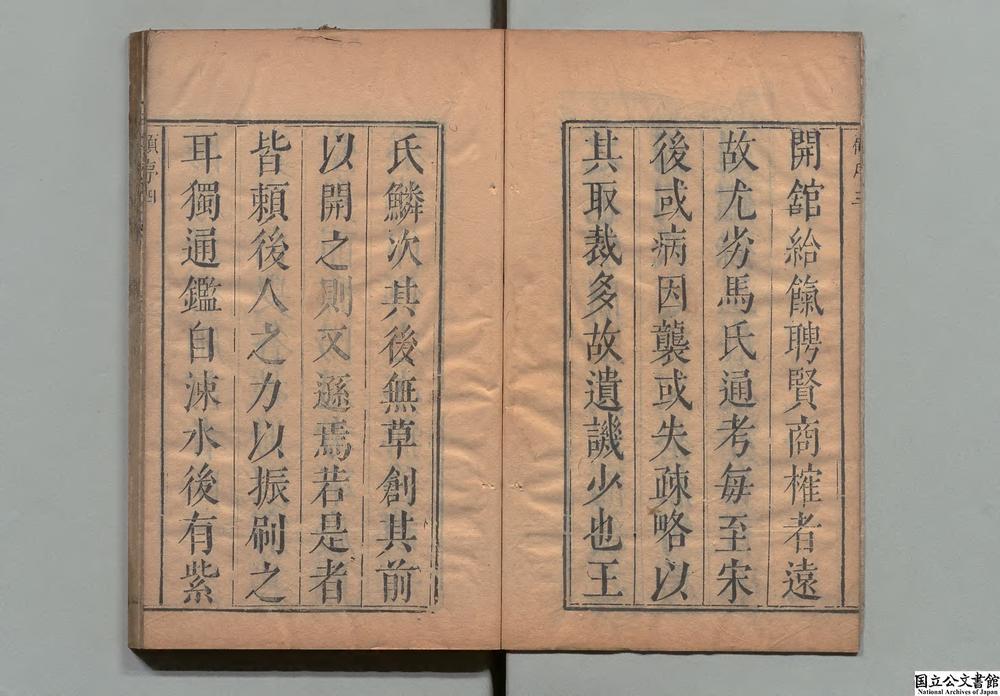 開舘給餼聘賢商榷者遠
故尤劣馬氏通考每至宋
後或病因襲或失疎略以
其取裁多故遺譏少也王
氏鱗次其後無草創其前
以開之則又遜焉若是者
皆頼後人之力以振刷之
耳獨通鑑自涑水後有紫
国立公文書館
National Archives of Japan